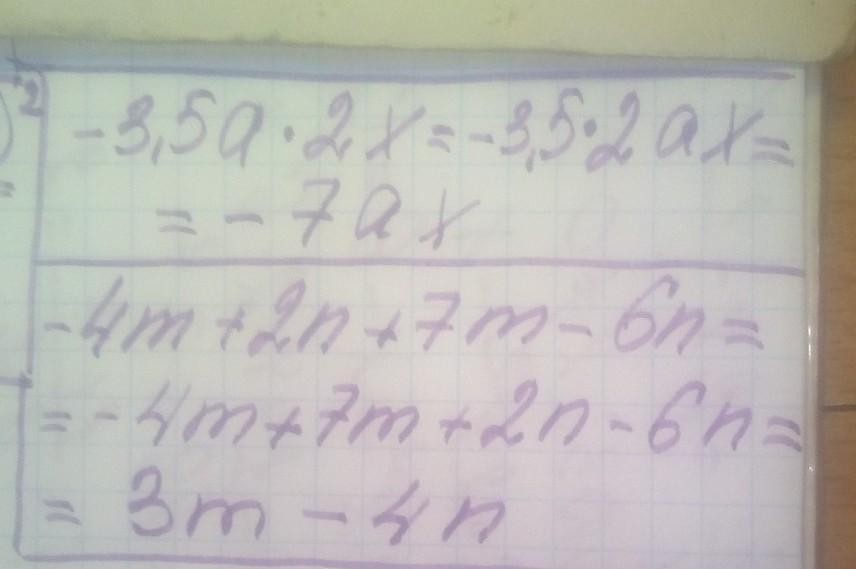 -3,5a·2x=-3,5·2ax=
=-7ax
-4m+2n+7m-6n=
=-4m+7m+2n-6n=
=3m-4n